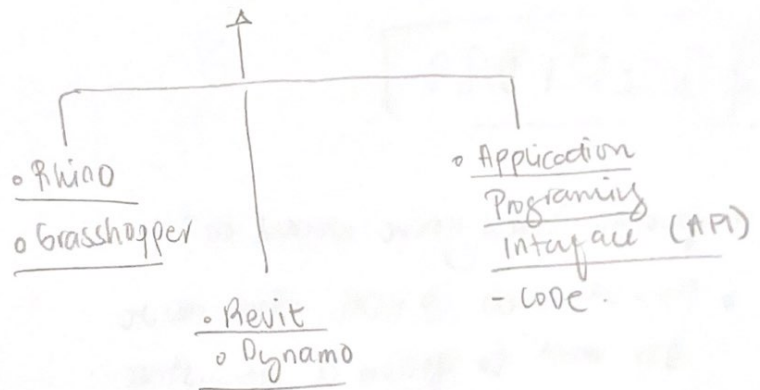 • Rhino
• Grasshopper
• Revit
• Dynamo
• Application
Programing
Interface (API)
- CODE